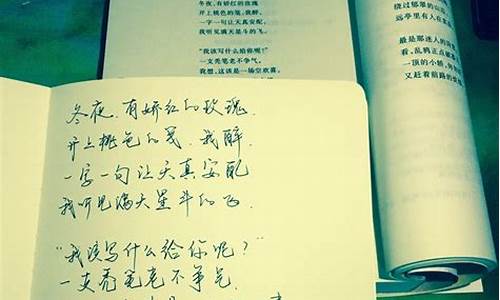 冬夜,有娇红的玫瑰
并上桃色的笺,我醉,
一字一句让天真安配,
我听见满天星斗的飞。
“我该写什么给你呢?”
一支秃笔老不争气。
我想,这该是一场空欢喜。
绕过郁翠的山
远亭里有人在
最是那迷人的
看,乱鸦正点破
一顶的小轿,
又赶着前路的
冬夜,有娇红的玫瑰,
并上桃色的笺,我醉,
一字一句让天真安配
我听见满天星斗的飞。
“我该写什么给你呢?”
一支秃笔老不争气。